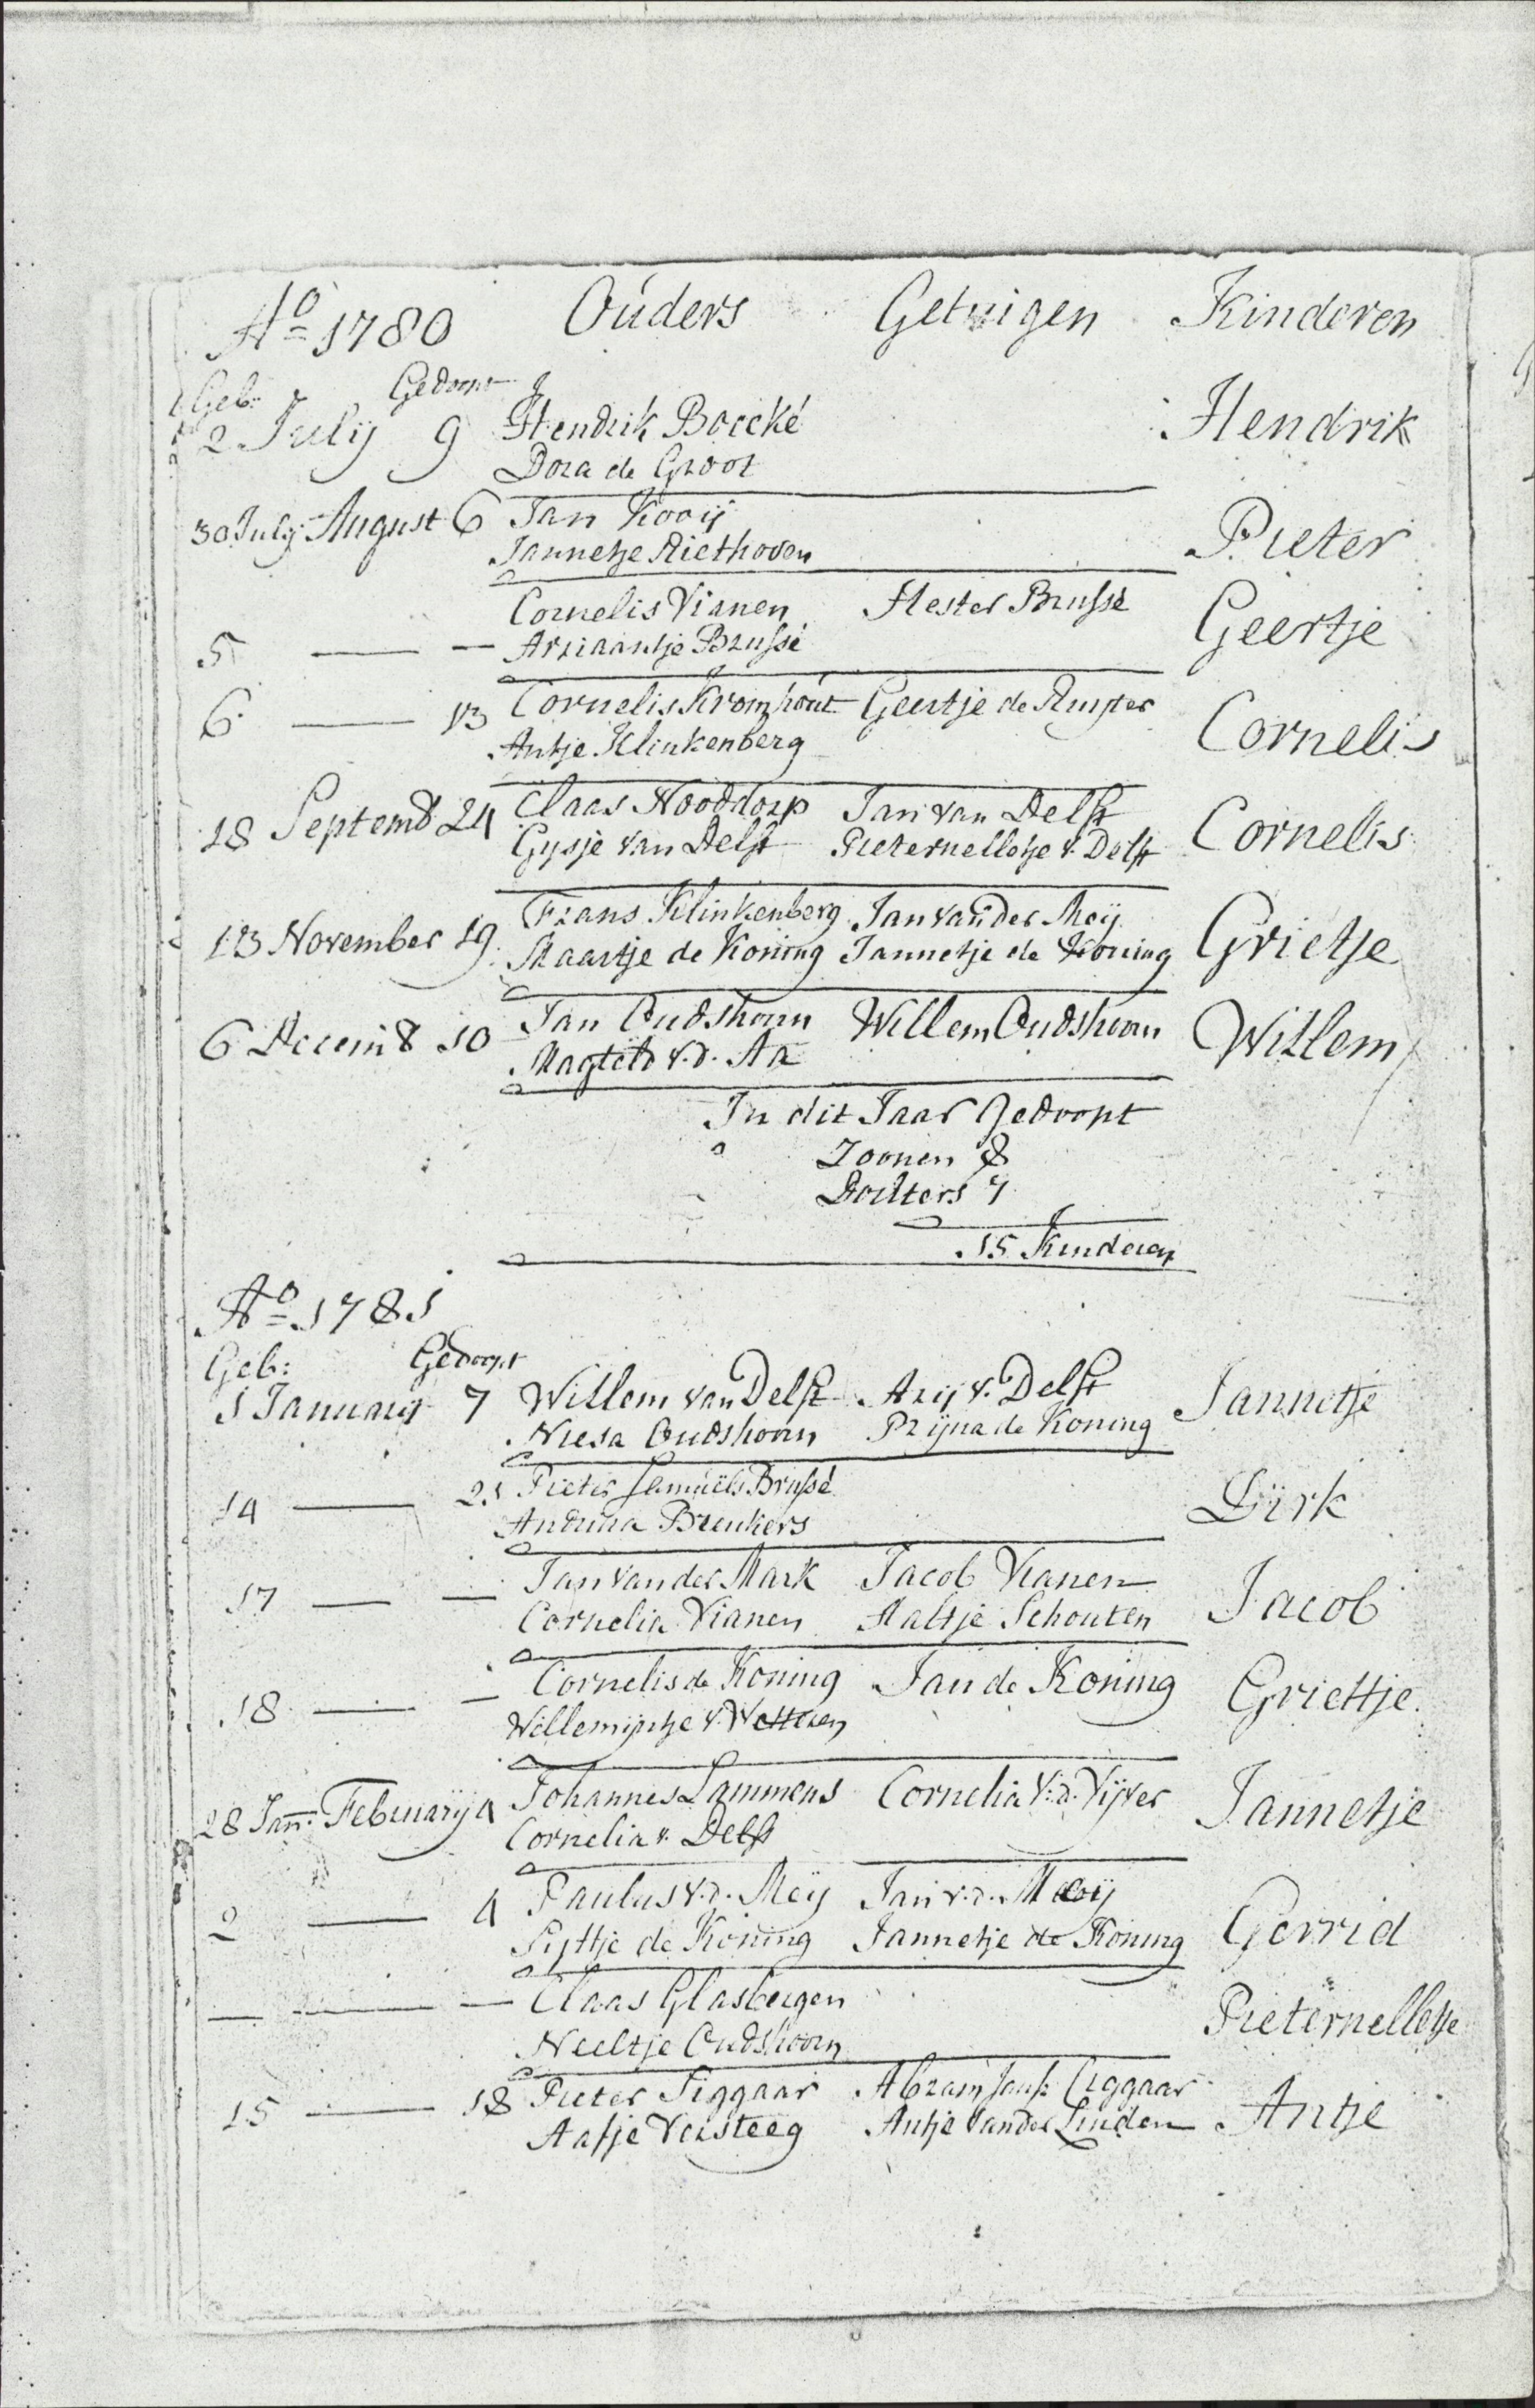 Aº 1780 Ouders Getuigen Kinderen
Geb: Gedoopt
2 July 9 Hendrik Boecké Hendrik
Dora de Groot
30 July August 6 Jan Kooij Pieter
Jannetje Riethoven
Cornelis Vianen Hester Brussé Geertje
5 — — Arriaantje Brussé
6 — 13 Cornelis Kromhout Geertje de Ruyter Cornelis
Antje Klinkenberg
18 Septemb 24 Claas Nooddorp Jan van Delft Cornelis
Gysje van Delft Pieternelletje v. Delft
13 November 19 Frans Klinkenberg Jan van der Meij Grietje
Maartje de Koning Jannetje de Koning
6 Decemb 10 Jan Oudshoorn Willem Oudshoorn Willem
Magteld v.d. Aa
In dit Jaar Gedoopt
Zoonen 8
Dochters 7
15 Kinderen
Aº 1781
Geb: Gedoopt
1 January 7 Willem van Delft Arij v. Delft Jannetje
Niesa Oudshoorn Prijna de Koning
14 — 21 Pieter Samuels Brussé Dirk
Breukers
17 — — Jan van der Mark Jacob Vianen Jacob
Cornelia Vianen Aaltje Schouten
18 — — Cornelis de Koning Jan de Koning Griettje
Willemijntje v. Wetteren
28 Jan: February 4 Johannes Lammens Cornelia v.d. Vijver Jannetje
Cornelia v. Delft
2 — 4 Paulus v.d. Meij Jan v.d. Meij Gerrid
Sijttje de Koning Jannetje de Koning
— — — Claas Glasbergen Pieternelletje
Neeltje Oudshoorn
15 — 18 Pieter Siggaar Abram Jansz Ciggaar Antje
Aafje Versteeg Antje van der Linden